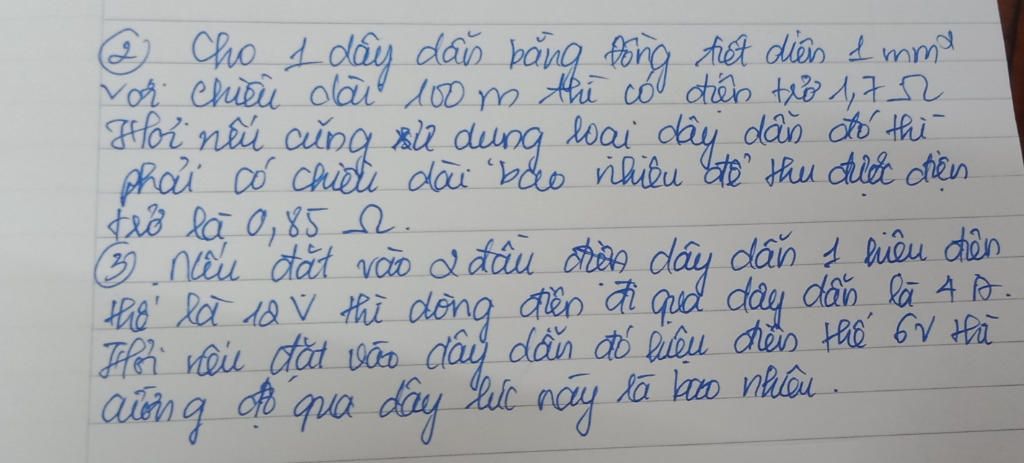 ② Cho 1 dây dẫn bằng đồng tiết diện 1 mm²
với chiều dài 100 m thì có điện trở 1,7 Ω
Hỏi nếu cũng sử dụng loại dây dẫn đó thì
phải có chiều dài bao nhiêu để thu được điện
trở là 0,85 Ω.
③. Nếu đặt vào 2 đầu dây dẫn 1 hiệu điện
thế là 12 V thì dòng điện đi qua dây dẫn là 4 A.
Hỏi nếu đặt vào dây dẫn đó hiệu điện thế 6V thì
cường độ qua dây lúc này là bao nhiêu.